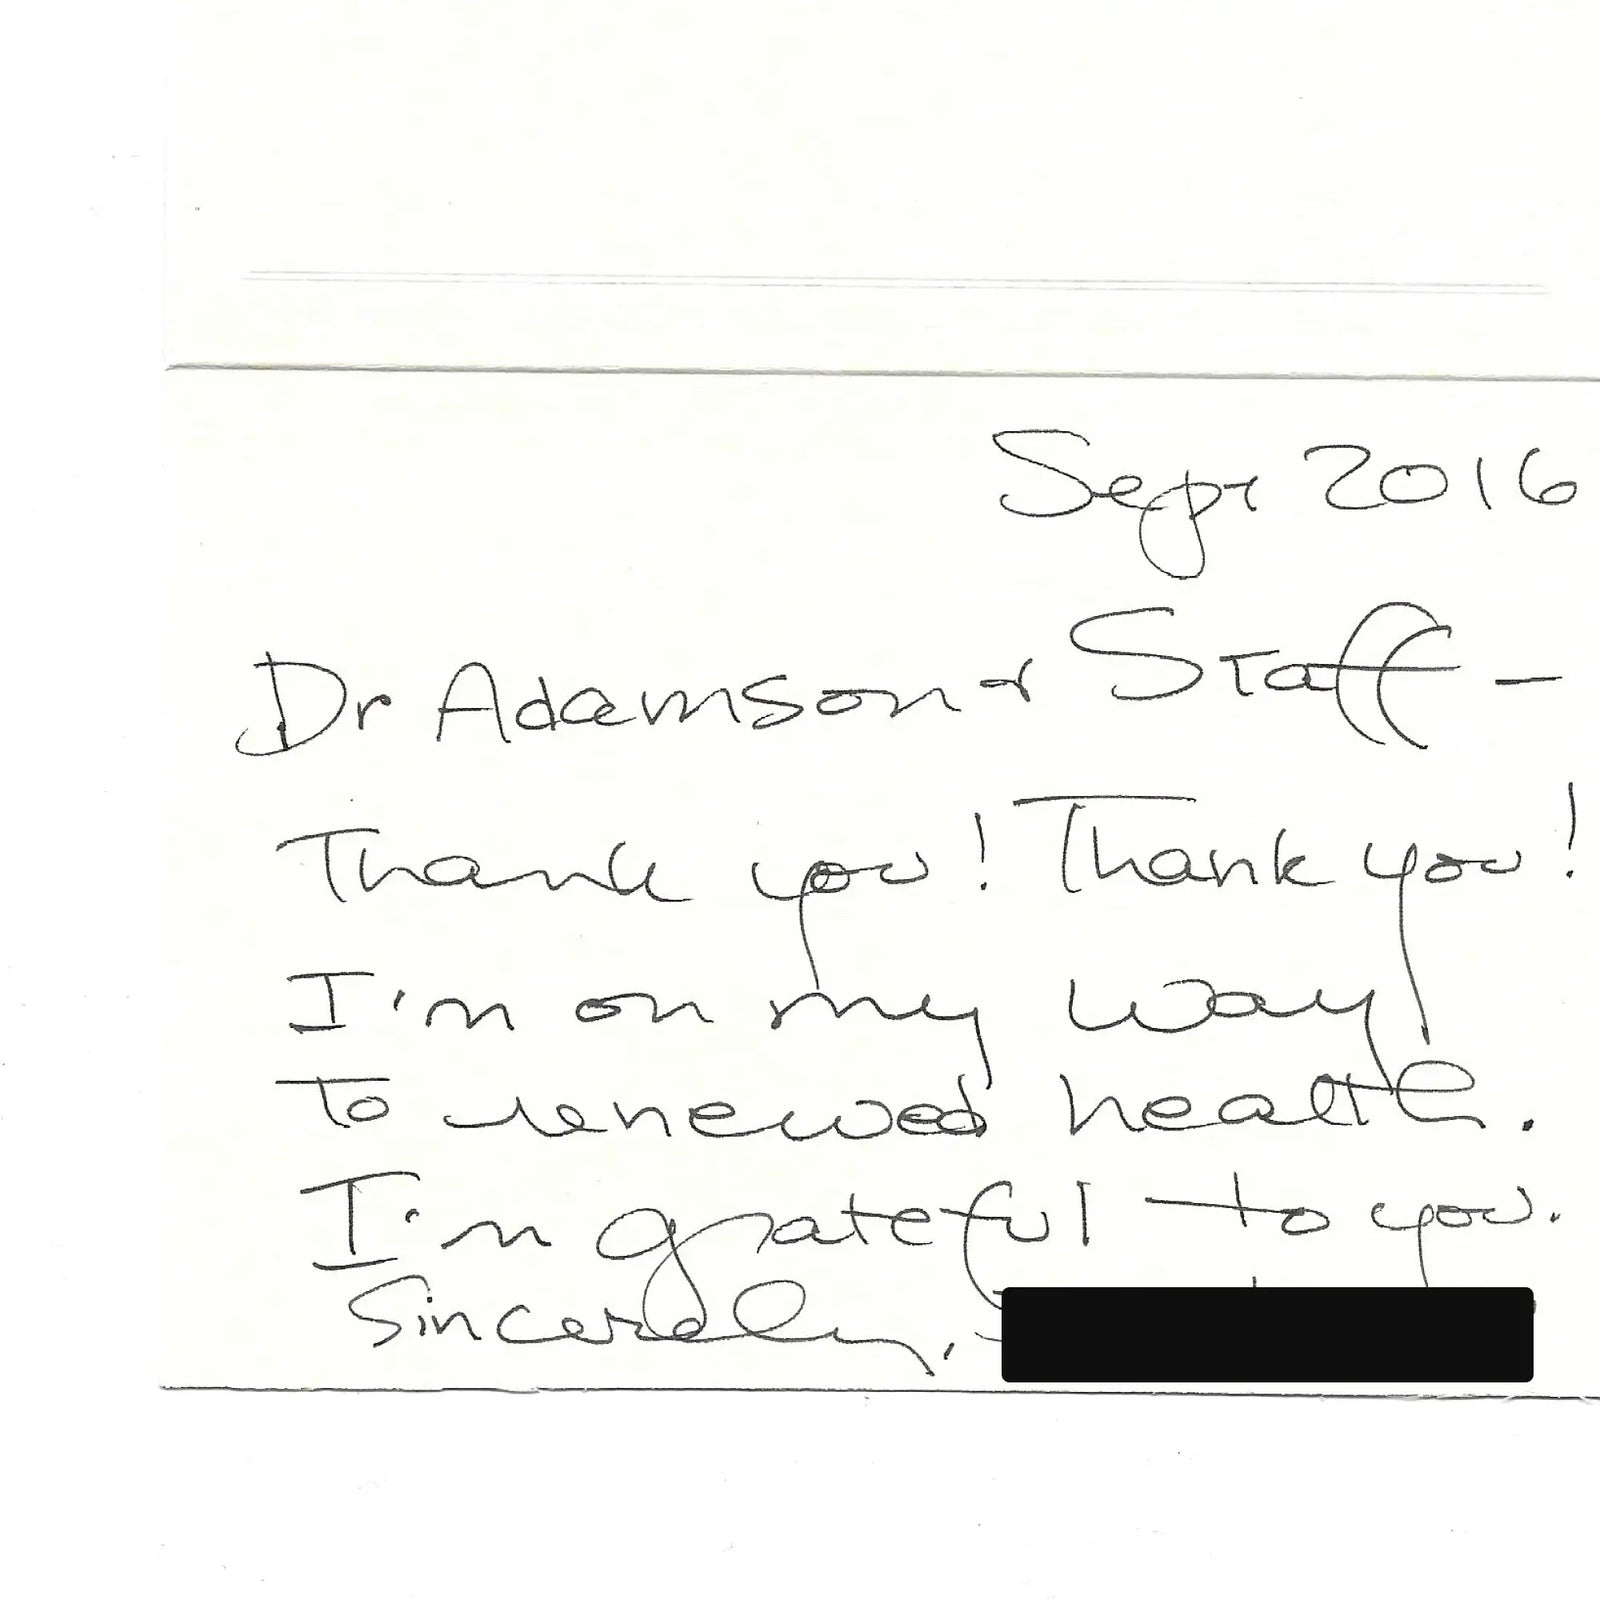 Sept 2016
Dr Adamson + Staff -
Thank you! Thank you!
I'm on my way
to renewed health.
I'm grateful to you.
Sincerely,